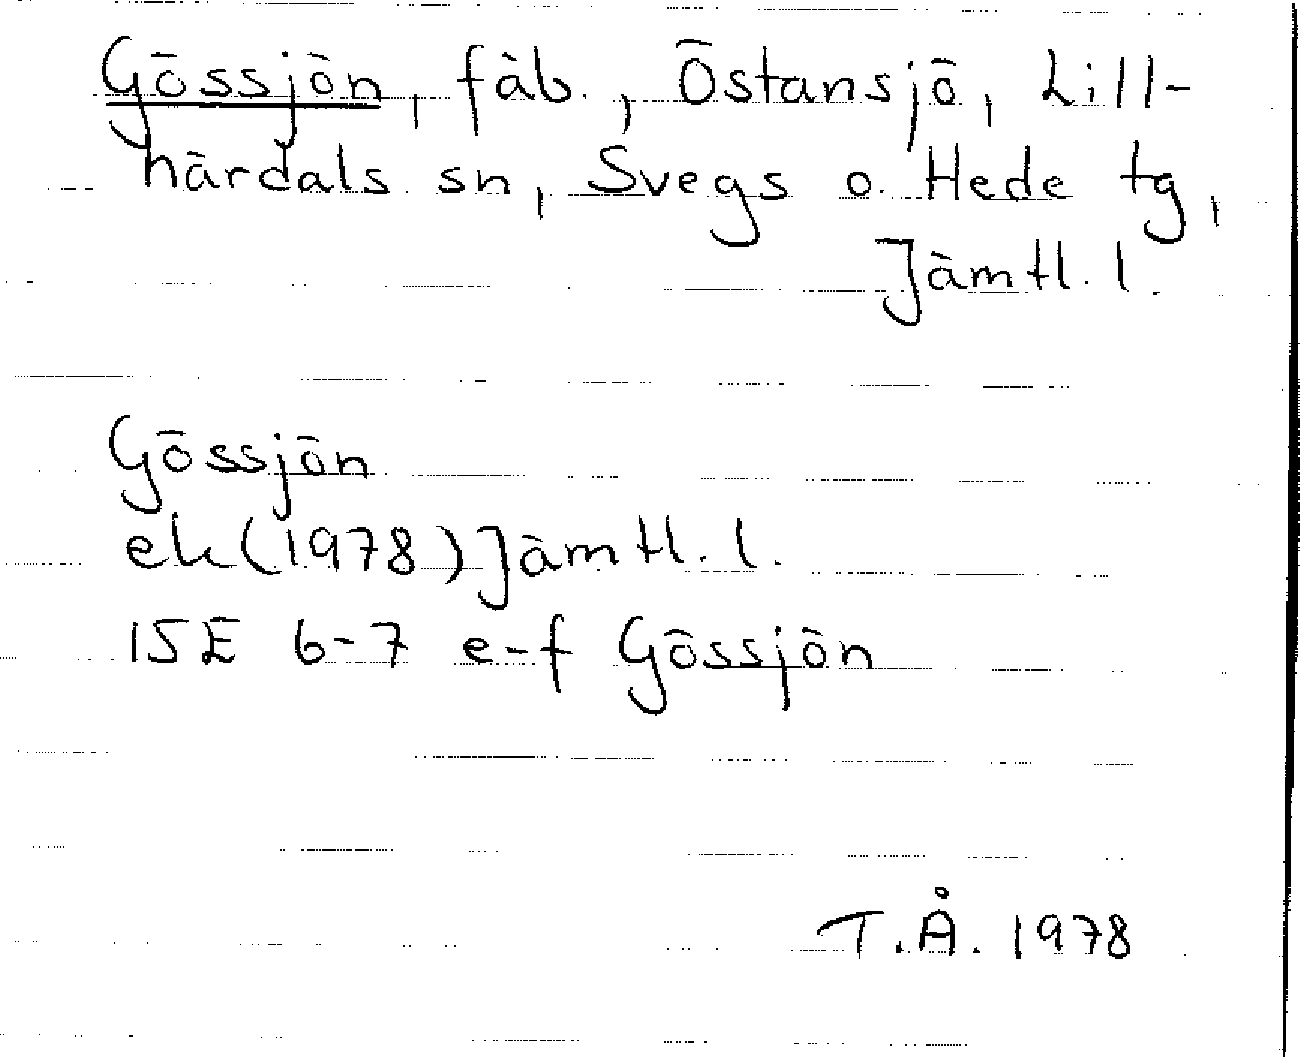 Gössjön, fäb., Östansjö, Lill-
härdals sn, Svegs o. Hede tg,
Jämtl. l.
Gössjön
ek (1978) Jämtl. l.
15E 6-7 e-f Gössjön
T.Å. 1978